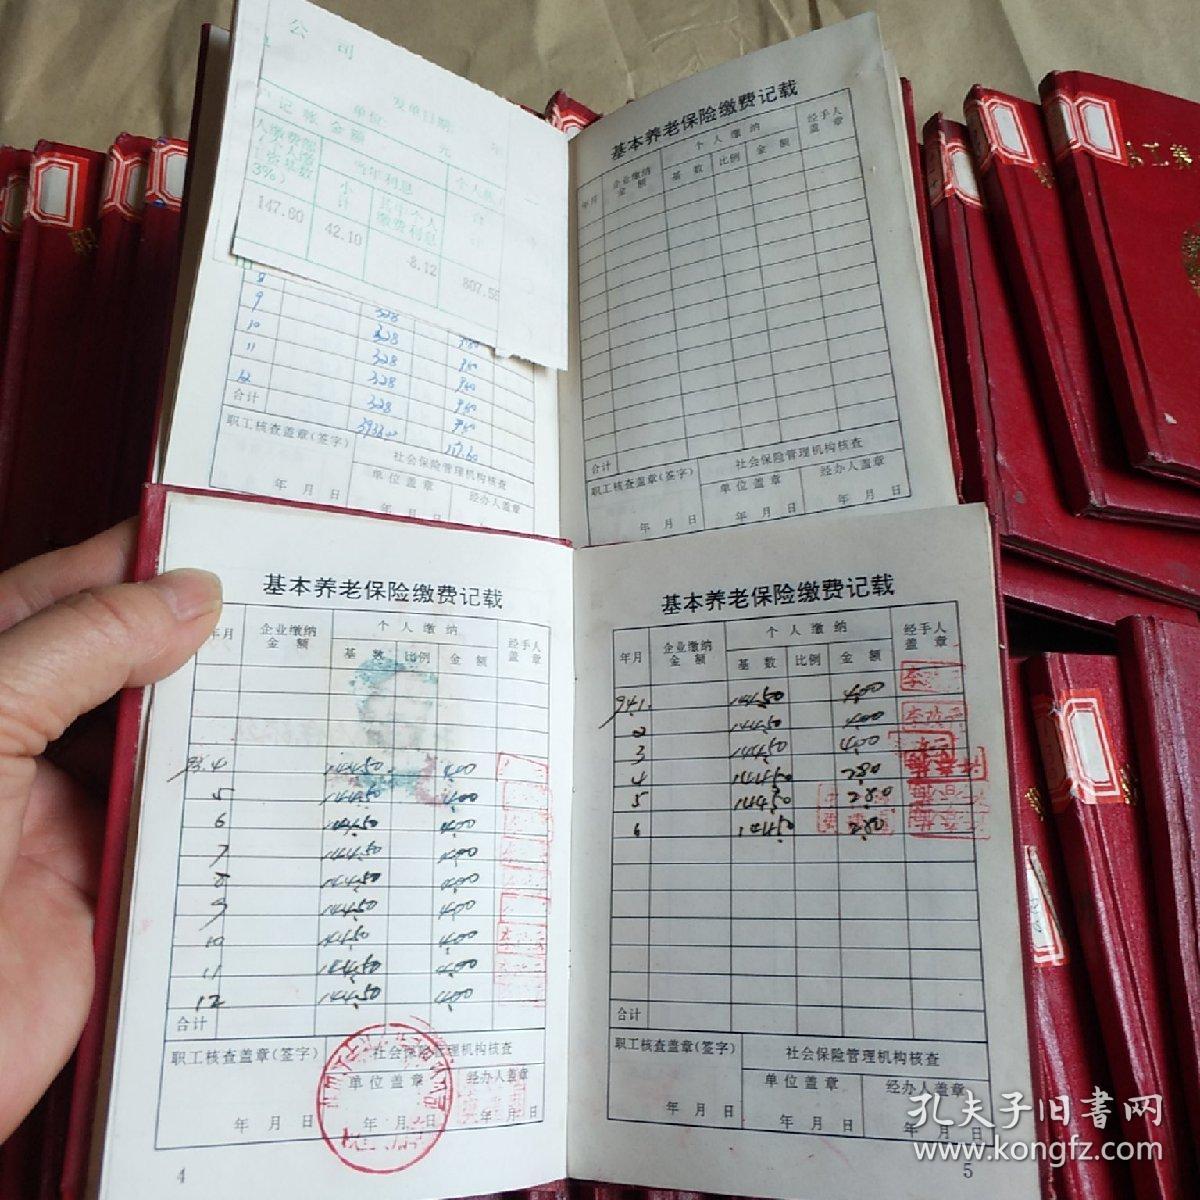 公司
发单日期:
年
单位:
元
记账金额
人缴费部
3%)
当年利息
小计
其中个人缴费利息
个人账
合计
147.60
42.10
8.12
807.55
8
328
9
328
10
328
11
328
12
328
合计
职工核查盖章(签字)
社会保险管理机构核查
单位盖章
经办人盖章
年 月 日
年 月 日
基本养老保险缴费记载
年月
企业缴纳金额
个人缴纳
基数
比例
金额
经手人盖章
合计
职工核查盖章(签字)
社会保险管理机构核查
单位盖章
经办人盖章
年 月 日
年 月 日
年 月 日
基本养老保险缴费记载
年月
企业缴纳金额
个人缴纳
基数
比例
金额
经手人盖章
93.4 144.50 4.00
5 144.50 4.00
6 144.50 4.00
7 144.50 4.00
8 144.50 4.00
9 144.50 4.00
10 144.50 4.00
11 144.50 4.00
12 144.50 4.00
合计
职工核查盖章(签字)
社会保险管理机构核查
单位盖章
经办人盖章
年 月 日
年 月 日
年 月 日
4
基本养老保险缴费记载
年月
企业缴纳金额
个人缴纳
基数
比例
金额
经手人盖章
94.1. 144.50 4.00
2 144.50 4.00
3 144.50 4.00
4 144.50 2.80
5 144.50 2.80
6 144.50 2.80
合计
职工核查盖章(签字)
社会保险管理机构核查
单位盖章
经办人盖章
年 月 日
年 月 日
年 月 日
5
孔夫子旧书网
www.kongfz.com